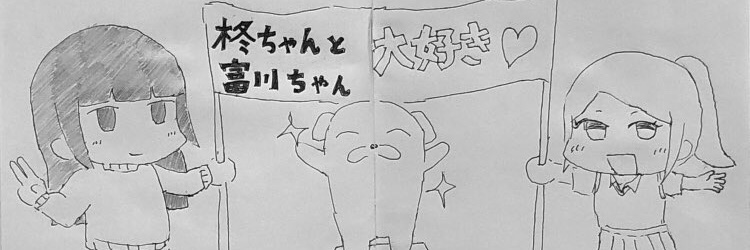 柊ちゃんと
富川ちゃん
大好き♡